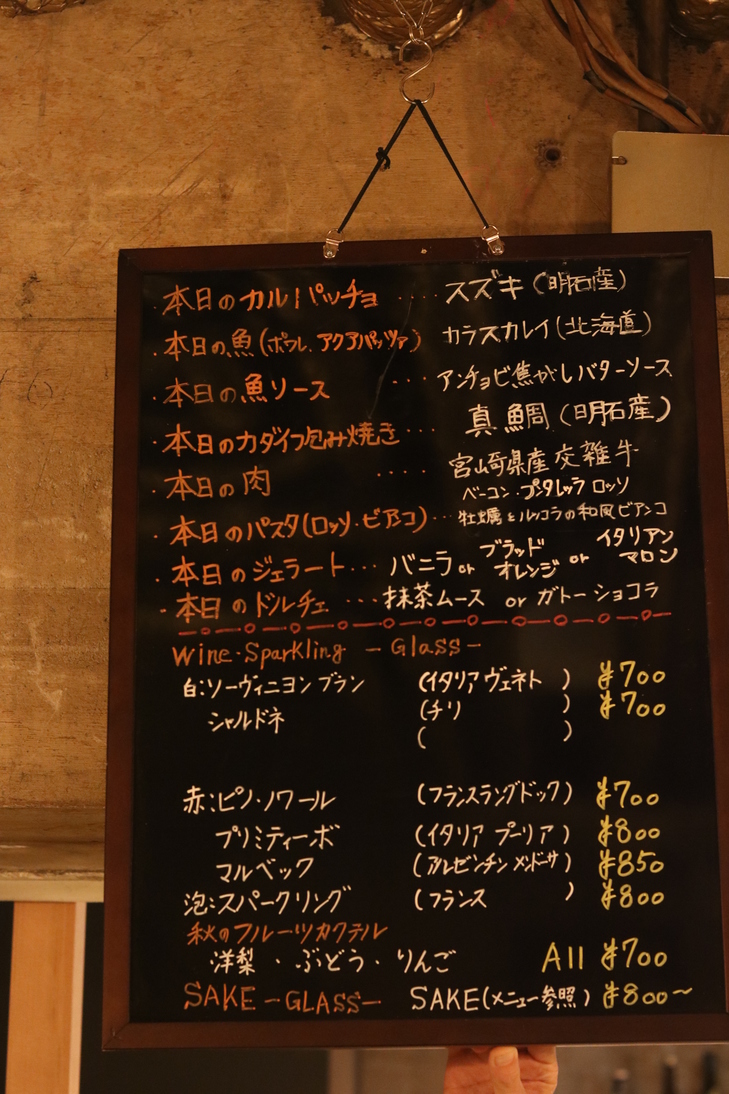 ・本日のカルパッチョ ････ スズキ(明石産)
・本日の魚(ポワレ、アクアパッツァ) カラスカレイ(北海道)
・本日の魚ソース ････ アンチョビ焦がしバターソース
・本日のカダイフ包み焼き ････ 真鯛(明石産)
・本日の肉 ････ 宮崎県産交雑牛
・本日のパスタ(ロッソ・ビアンコ)･･･ ベーコン・プンタレッラ ロッソ
牡蠣とルッコラの和風ビアンコ
・本日のジェラート･･･ バニラ or ブラッドオレンジ or イタリアンマロン
・本日のドルチェ ････ 抹茶ムース or ガトーショコラ
Wine・Sparkling －Glass－
白:ソーヴィニヨンブラン (イタリアヴェネト ) ¥700
シャルドネ (チリ ) ¥700
( )
赤:ピノ・ノワール (フランスラングドック) ¥700
プリミティーボ (イタリア プーリア) ¥800
マルベック (アルゼンチン メンドーサ) ¥850
泡:スパークリング (フランス ) ¥800
秋のフルーツカクテル
洋梨 ・ ぶどう ・ りんご All ¥700
SAKE －GLASS－ SAKE(メニュー参照) ¥800～